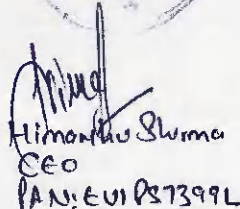 Himanshu Sharma
CEO
PAN: EUIPS7399L